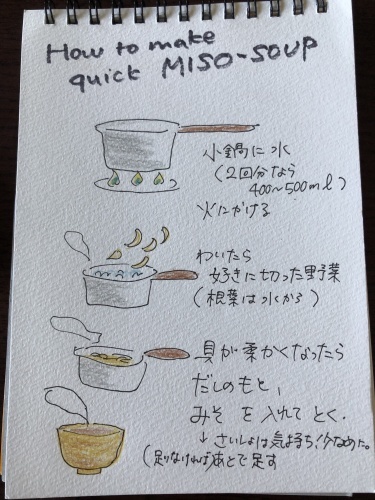 How to make
quick MISO-SOUP
小鍋に水
(2回分なら
400~500ml)
火にかける
わいたら
好きに切った野菜
(根菜は水から)
具が柔かくなったら
だしのもと、
みそ を入れて とく.
↓ さいしょは気持ち少なめに。
(足りなければあとで足す